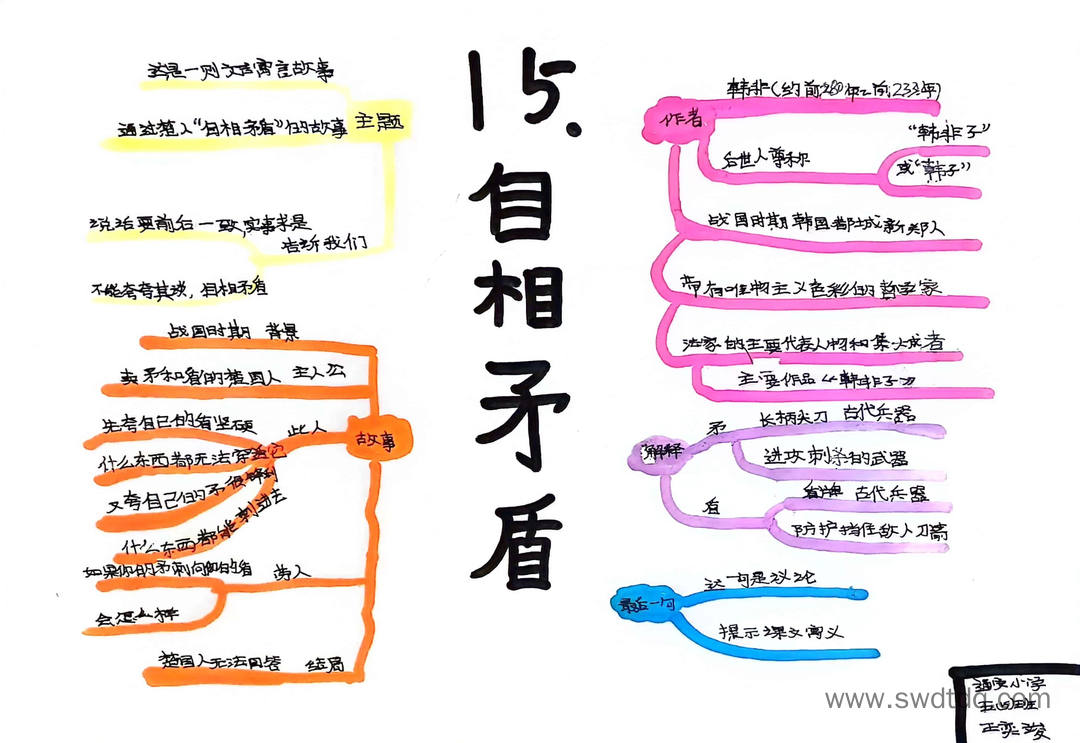 15.
自相矛盾
主题
这是一则文言寓言故事
通过楚人“自相矛盾”的故事
告诉我们
说话要前后一致,实事求是
不能夸夸其谈,自相矛盾
故事
战国时期 背景
卖矛和盾的楚国人 主人公
此人
先夸自己的盾坚硬
什么东西都无法穿透它
又夸自己的矛很锋利
什么东西都能刺进去
旁人
如果你的矛刺向你的盾
会怎么样
楚国人无法回答 结局
作者
韩非(约前280年—前233年)
后世人尊称
“韩非子”
或“韩子”
战国时期韩国都城新郑人
带有唯物主义色彩的哲学家
法家的主要代表人物和集大成者
主要作品《韩非子》
解释
矛
长柄尖刀 古代兵器
进攻刺杀的武器
盾
盾牌 古代兵器
防护挡住敌人刀箭
最后一句
这一句是议论
提示课文寓意
小学
班
王奕
www.swdtdq.com